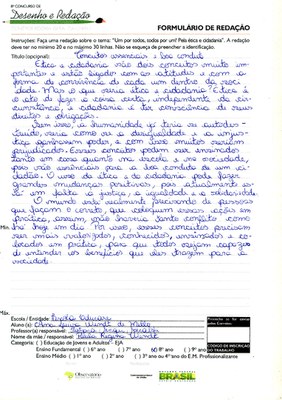 8º CONCURSO DE
Desenho e Redação
FORMULÁRIO DE REDAÇÃO
Instruções: Faça uma redação sobre o tema: "Um por todos, todos por um! Pela ética e cidadania". A redação
deve ter no mínimo 20 e no máximo 30 linhas. Não se esqueça de preencher a identificação.
Título (opcional): Conceitos essenciais à boa conduta
Ética e cidadania são dois conceitos muito im-
portantes e estão ligados com as atitudes e com a
forma de convivência de cada um dentro da socie-
dade. Mas o que seria ética e cidadania? Ética é
o ato de fazer a coisa certa, independente da cir-
cunstância, e cidadania é ter consciência de seus
direitos e obrigações.
Sem isso, a humanidade já teria se autodes-
truído, seria como se a desigualdade e a injus-
tiça ganhassem poder, e com isso muitos seriam
prejudicados. Esses conceitos podem ser ensinados
tanto em casa quanto na escola e na sociedade,
pois são essenciais para a boa conduta de um ci-
dadão. O uso da ética e da cidadania pode fazer
grandes mudanças positivas, pois atualmente es-
tá em falta a justiça, a igualdade e a solidariedade.
O mundo está realmente precisando de pessoas
que façam o correto, que coloquem essas ações em
prática, assim, não haveria tanto conflito como
há hoje em dia. Por isso, esses conceitos precisam
ser mais reforçados, conhecidos, ensinados e co-
locados em prática, para que todos sejam capazes
de entender os benefícios que eles trazem para a
sociedade.
Mín.
Máx.
Escola / Entidade:
Aluno (a):
Professor(a) responsável:
Nome da mãe / responsável:
Categoria: ( ) Educação de Jovens e Adultos - EJA
Ensino Fundamental ( ) 6º ano ( ) 7º ano 8º ano ( ) 9º ano
Ensino Médio ( ) 1º ano ( ) 2º ano ( ) 3º ano ou 4º ano do E.M. Profissionalizante
CÓDIGO DE INSCRIÇÃO
DO TRABALHO
Observatório
BRASIL